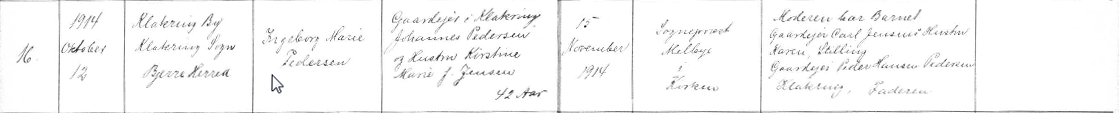 16.
1914
Oktober
12
Klakring By
Klakring Sogn
Bjerre Herred
Ingeborg Marie
Pedersen
Gaardejer i Klakring
Johannes Pedersen
og Hustru Kirstine
Marie J. Jensen
42 Aar
15
November
1914
Sognepræst
Melbye
i
Kirken
Moderen bar Barnet
Gaardejer Carl Jensens Hustru
Karen Stilling
Gaardejer Peder Hansen Pedersen
Klakring, Faderen